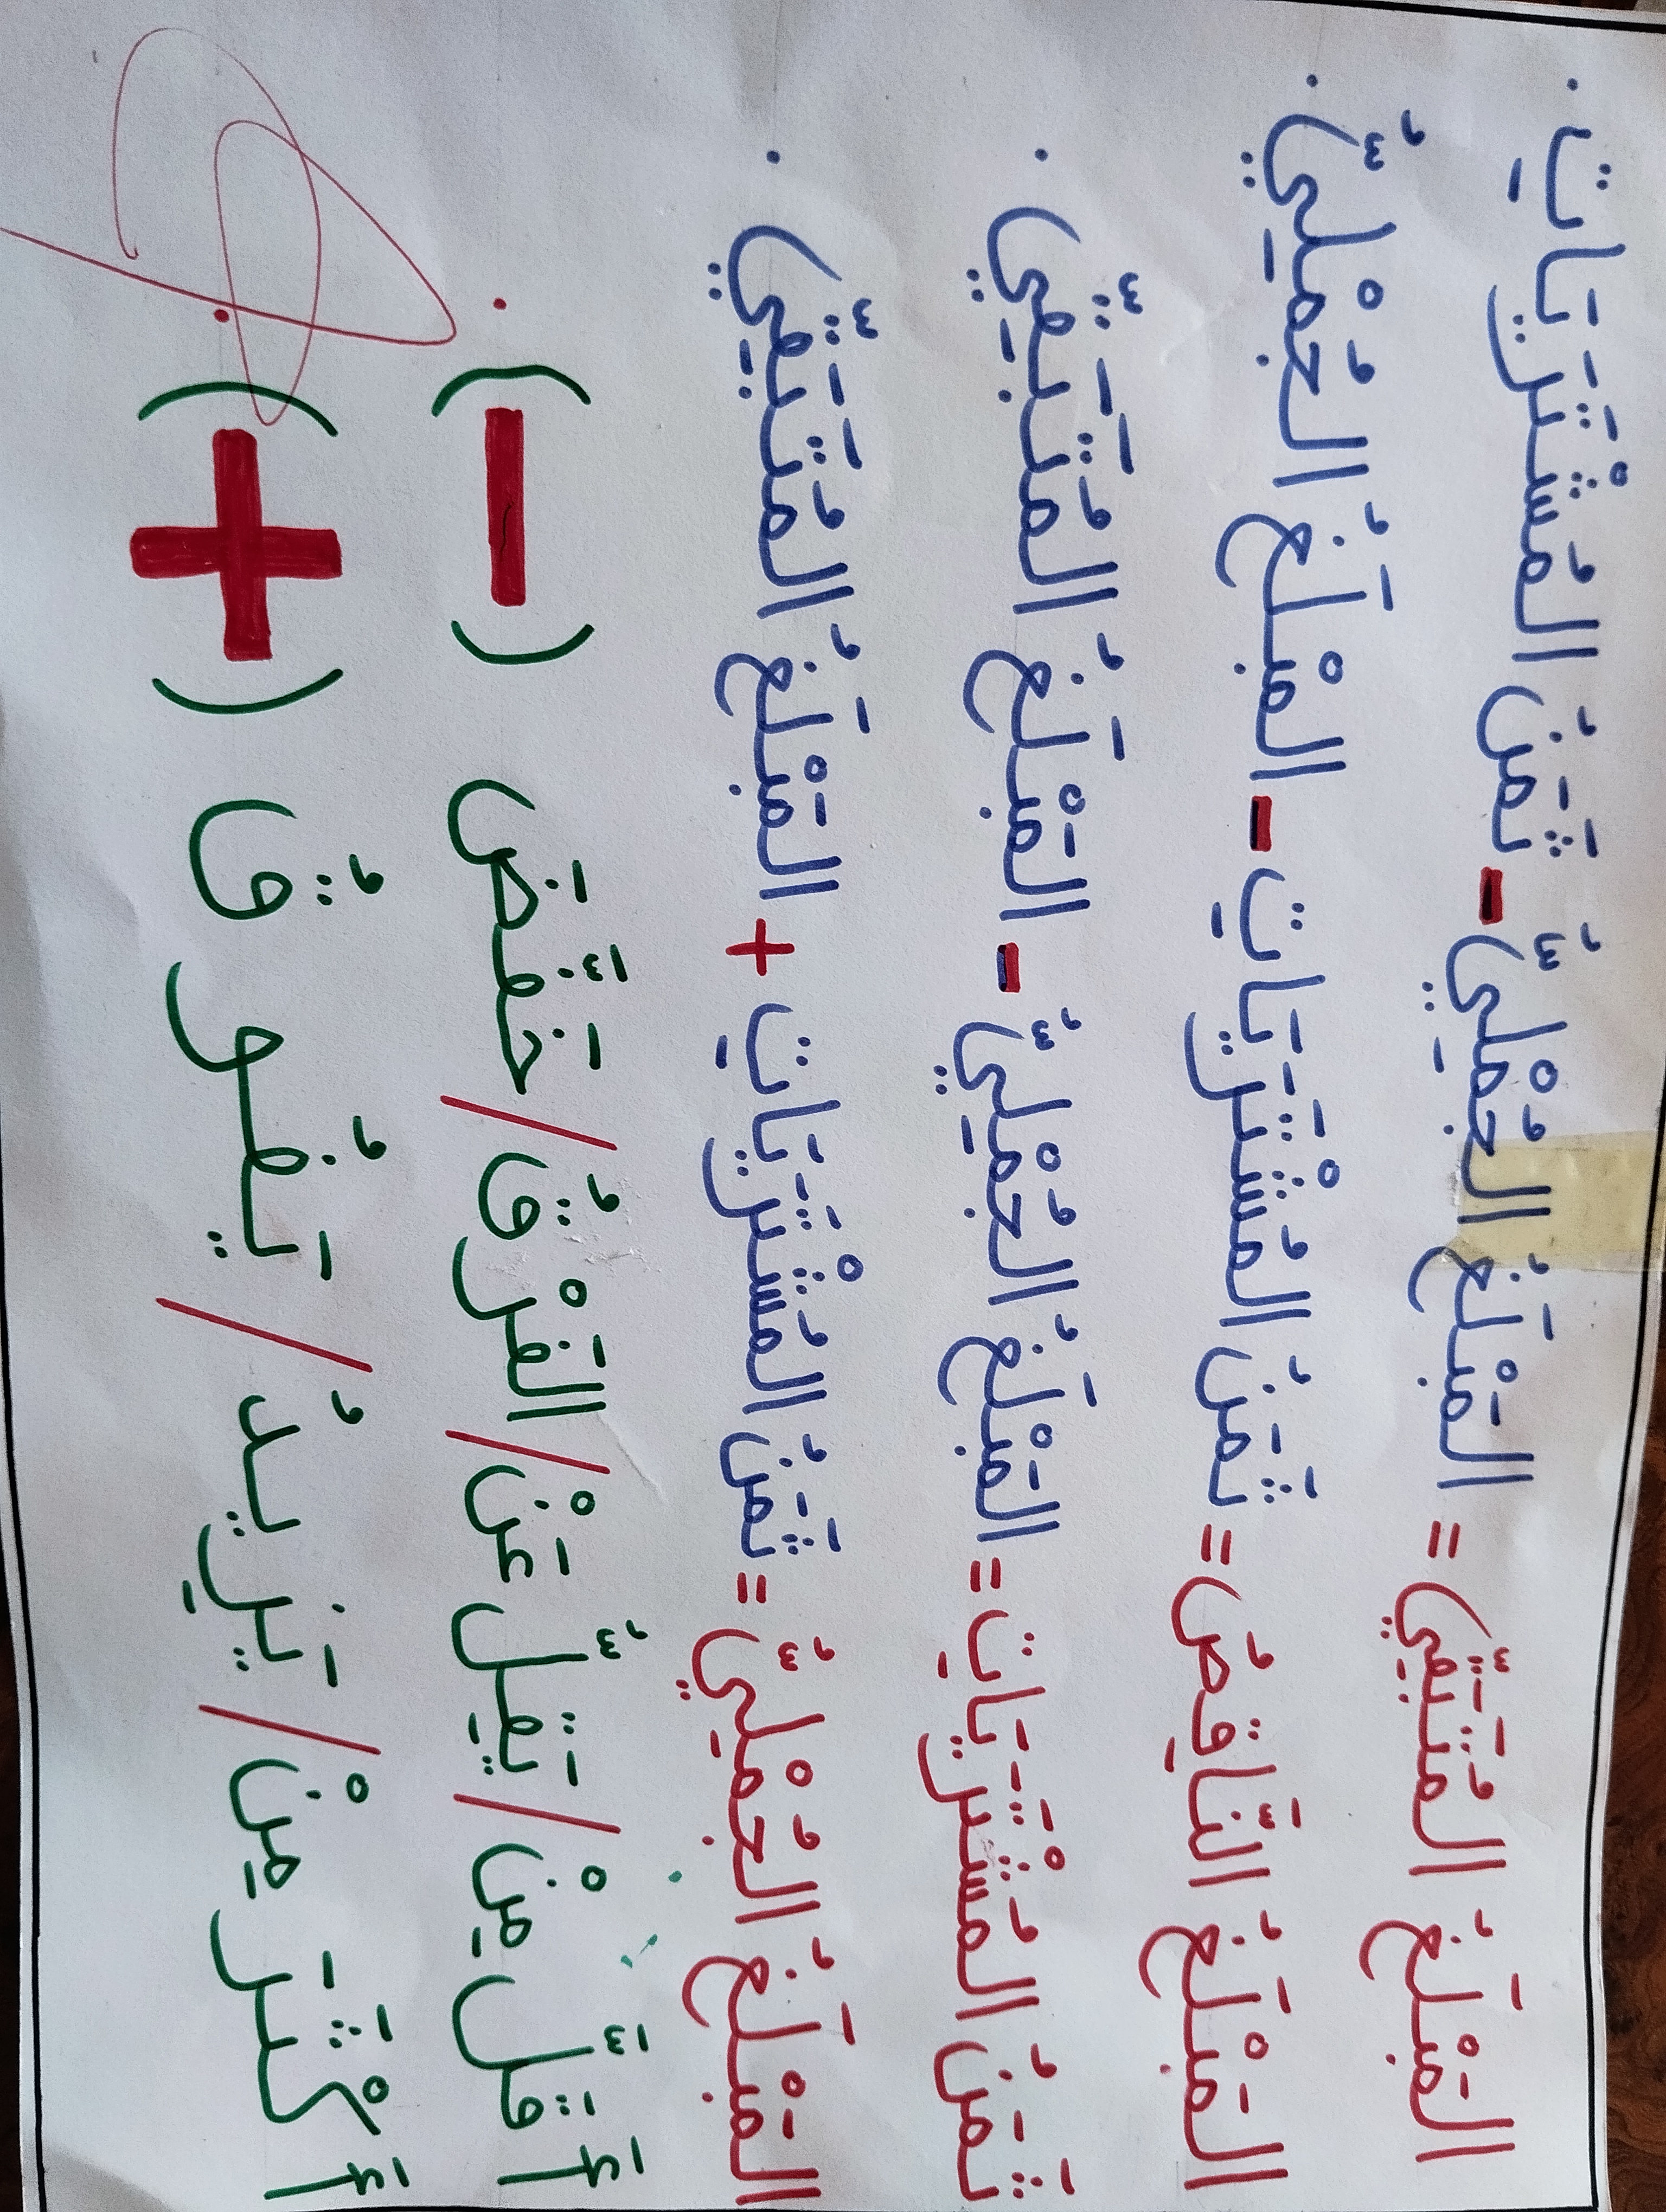 المَبْلَغُ المُتَبَقِّيّ = المَبْلَغُ الجُمْلِيُّ - ثَمَنُ المُشْتَرَيَاتِ .
المَبْلَغُ النَّاقِصُ = ثَمَنُ المُشْتَرَيَاتِ - المَبْلَغُ الجُمْلِيُّ .
ثَمَنُ المُشْتَرَيَاتِ = المَبْلَغُ الجُمْلِيُّ - المَبْلَغُ المُتَبَقِّيّ .
المَبْلَغُ الجُمْلِيُّ = ثَمَنُ المُشْتَرَيَاتِ + المَبْلَغُ المُتَبَقِّيّ .
أَقَلَّ مِنْ / يَقِلُّ عَنْ / الفَرْقُ / خَفَّضَ (-) .
أَكْثَرَ مِنْ / يَزِيدُ / يَفُوقُ (+) .